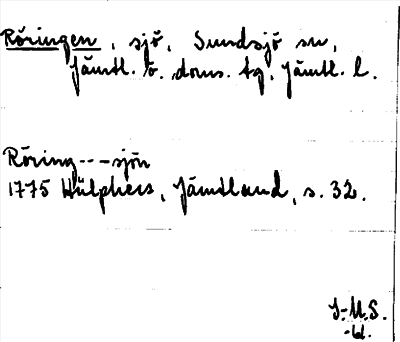 Röringen, sjö, Sundsjö sn,
Jämtl. ö. doms. tg, Jämtl. l.
Röring---sjön
1775 Hülphers, Jämtland, s. 32.
J.-M.S.